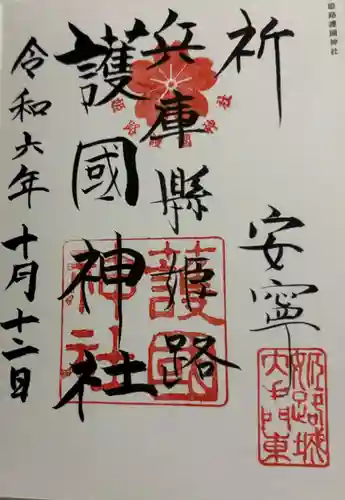 姫路護國神社
祈
安寧
兵庫縣姫路
護國神社
令和六年 十月十二日
護國神社
姫路城大手門東